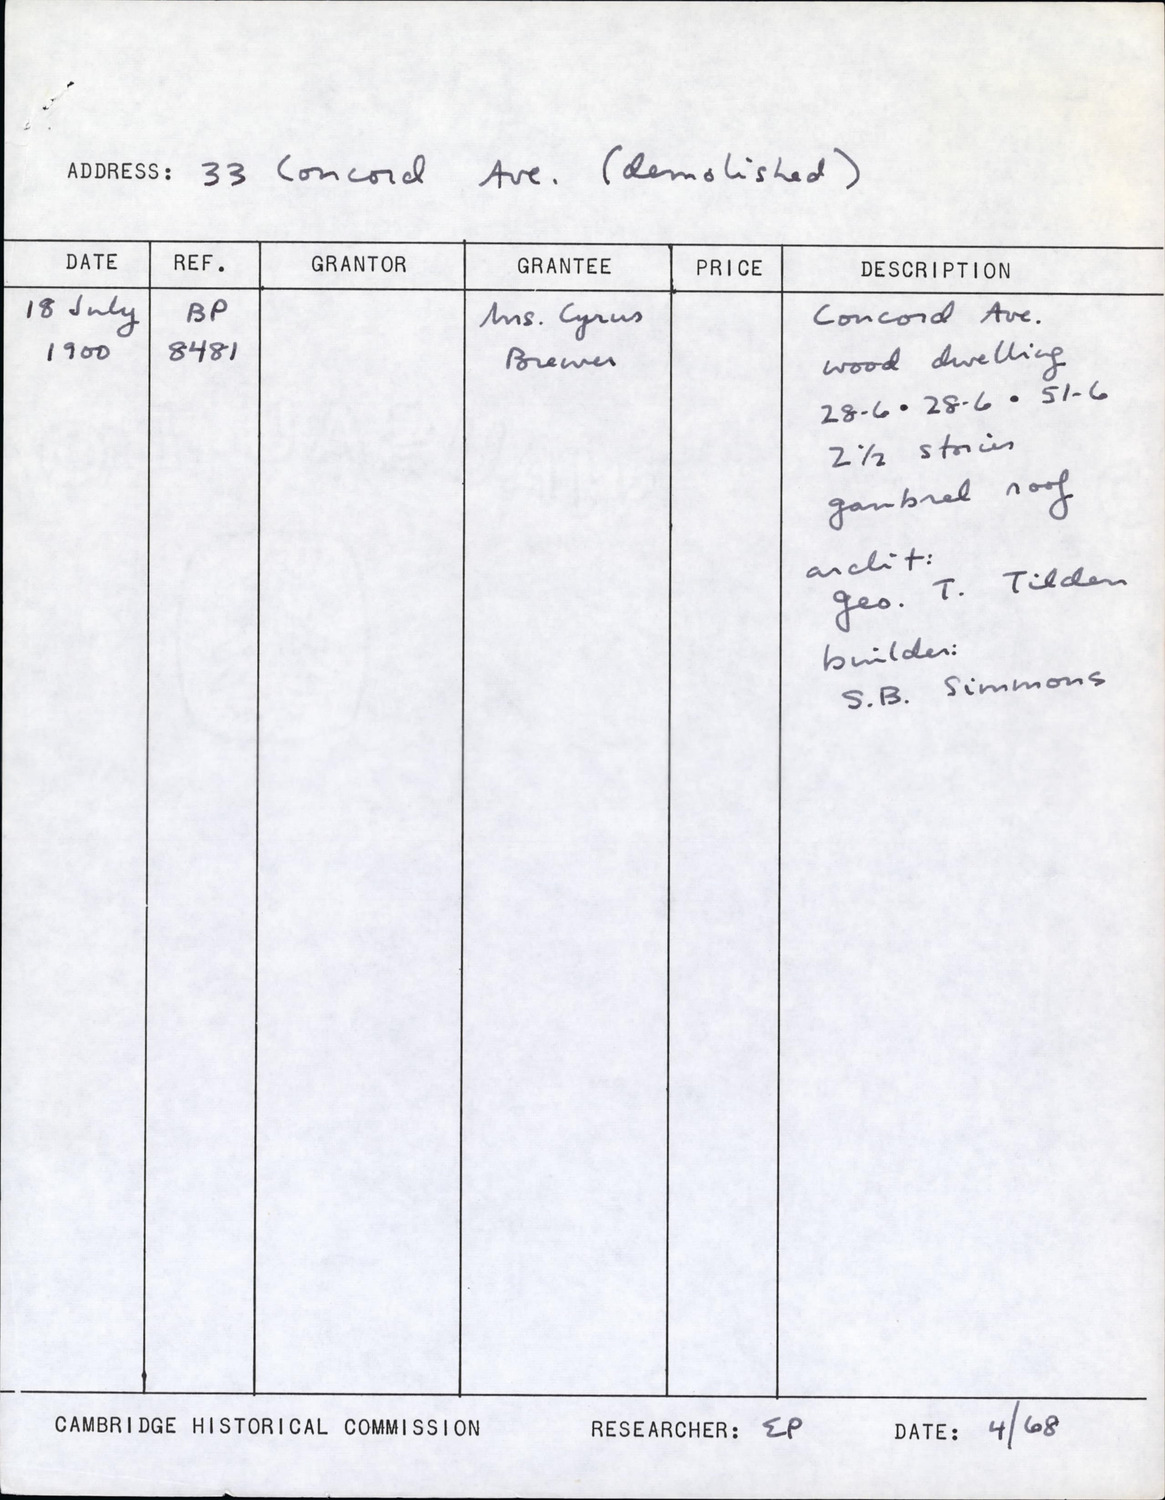 ADDRESS: 33 Concord Ave. (demolished)
DATE REF. GRANTOR GRANTEE PRICE DESCRIPTION
18 July BP Mrs. Cyrus Concord Ave.
1900 8481 Brewer wood dwelling
28-6 • 28-6 • 51-6
2 1/2 stories
gambrel roof
archit:
Geo. T. Tilden
builder:
S.B. Simmons
CAMBRIDGE HISTORICAL COMMISSION RESEARCHER: EP DATE: 4/68